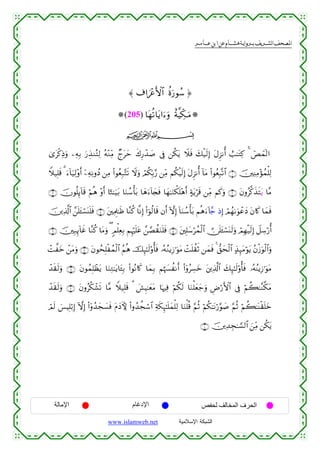 المصحف الشريف برواية هشام عن ابن عامر
﴿ سُورَةُ ٱلْأَعْرَافِ ﴾
*مَكِّيَّةٌ وَءَايَاتُهَا (205)*
بِسْمِ ٱللَّهِ ٱلرَّحْمَٰنِ ٱلرَّحِيمِ
الٓمٓصٓ ۚ كِتَٰبٌ أُنزِلَ إِلَيْكَ فَلَا يَكُن فِي صَدْرِكَ حَرَجٌ مِّنْهُ لِتُنذِرَ بِهِۦ وَذِكْرَىٰ
لِلْمُؤْمِنِينَ ۝ ٱتَّبِعُوا۟ مَآ أُنزِلَ إِلَيْكُم مِّن رَّبِّكُمْ وَلَا تَتَّبِعُوا۟ مِن دُونِهِۦٓ أَوْلِيَآءَ ۗ قَلِيلًا
مَّا يَتَذَكَّرُونَ ۝ وَكَم مِّن قَرْيَةٍ أَهْلَكْنَٰهَا فَجَآءَهَا بَأْسُنَا بَيَٰتًا أَوْ هُمْ قَآئِلُونَ ۝
فَمَا كَانَ دَعْوَىٰهُمْ إِذ جَّآءَهُم بَأْسُنَآ إِلَّآ أَن قَالُوٓا۟ إِنَّا كُنَّا ظَٰلِمِينَ ۝ فَلَنَسْـَٔلَنَّ ٱلَّذِينَ
أُرْسِلَ إِلَيْهِمْ وَلَنَسْـَٔلَنَّ ٱلْمُرْسَلِينَ ۝ فَلَنَقُصَّنَّ عَلَيْهِم بِعِلْمٍ ۖ وَمَا كُنَّا غَآئِبِينَ ۝
وَٱلْوَزْنُ يَوْمَئِذٍ ٱلْحَقُّ ۚ فَمَن ثَقُلَتْ مَوَٰزِينُهُۥ فَأُو۟لَٰٓئِكَ هُمُ ٱلْمُفْلِحُونَ ۝ وَمَنْ خَفَّتْ
مَوَٰزِينُهُۥ فَأُو۟لَٰٓئِكَ ٱلَّذِينَ خَسِرُوٓا۟ أَنفُسَهُم بِمَا كَانُوا۟ بِـَٔايَٰتِنَا يَظْلِمُونَ ۝ وَلَقَدْ
مَكَّنَّٰكُمْ فِي ٱلْأَرْضِ وَجَعَلْنَا لَكُمْ فِيهَا مَعَٰيِشَ ۗ قَلِيلًا مَّا تَشْكُرُونَ ۝ وَلَقَدْ
خَلَقْنَٰكُمْ ثُمَّ صَوَّرْنَٰكُمْ ثُمَّ قُلْنَا لِلْمَلَٰٓئِكَةِ ٱسْجُدُوا۟ لِـَٔادَمَ فَسَجَدُوٓا۟ إِلَّآ إِبْلِيسَ لَمْ
يَكُن مِّنَ ٱلسَّٰجِدِينَ ۝
الحرف المخالف لحفص الإدغام الإمالة
الشبكة الإسلامية www.islamweb.net